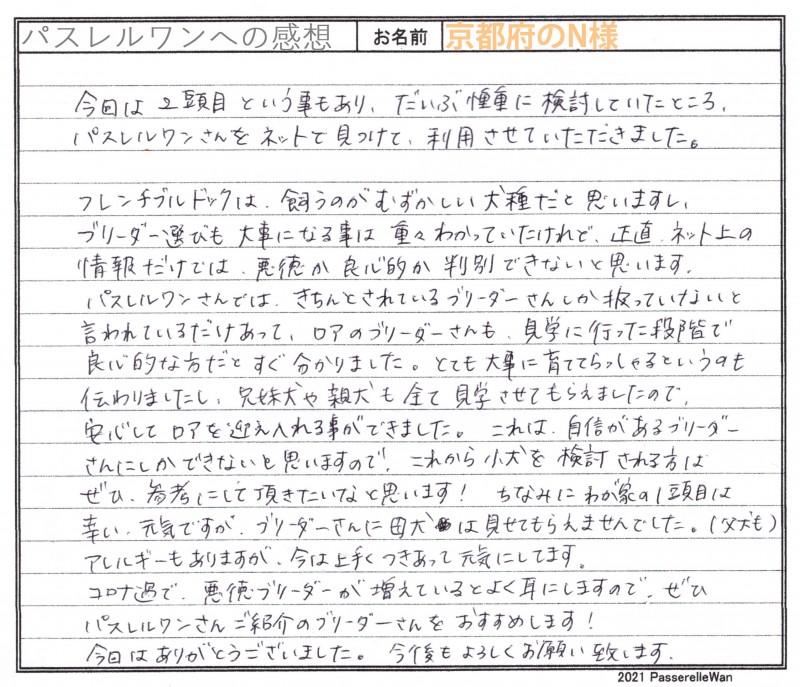 パスレルワンへの感想 お名前 京都府のN様
今回は2頭目という事もあり、だいぶ慎重に検討していたところ、
パスレルワンさんをネットで見つけて、利用させていただきました。
フレンチブルドックは、飼うのがむずかしい犬種だと思いますし、
ブリーダー選びも大事になる事は重々わかっていたけれど、正直、ネット上の
情報だけでは、悪徳か良心的か判別できないと思います。
パスレルワンさんでは、きちんとされているブリーダーさんしか扱っていないと
言われているだけあって、ロアのブリーダーさんも、見学に行った段階で
良心的な方だとすぐ分かりました。とても大事に育ててらっしゃるというのも
伝わりましたし、兄妹犬や親犬も全て見学させてもらえましたので、
安心してロアを迎え入れる事ができました。これは、自信があるブリーダー
さんにしかできないと思いますので、これから小犬を検討される方は
ぜひ、参考にして頂きたいなと思います！ちなみにわが家の1頭目は
幸い、元気ですが、ブリーダーさんに母犬は見せてもらえませんでした。(父犬も)
アレルギーもありますが、今は上手くつきあって元気にしてます。
コロナ過で、悪徳ブリーダーが増えているとよく耳にしますので、ぜひ
パスレルワンさんご紹介のブリーダーさんをおすすめします！
今回はありがとうございました。今後もよろしくお願い致します。
2021 PasserelleWan